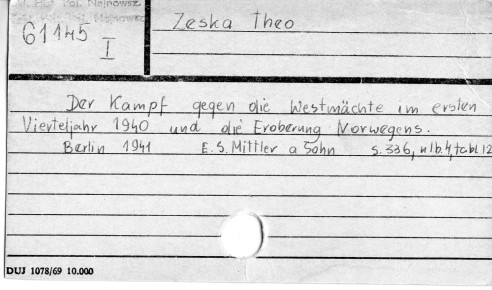 Hist. Pol. Najnowsz
61145
I
Zeska Theo
Der Kampf gegen die Westmächte im ersten
Vierteljahr 1940 und die Eroberung Norwegens.
Berlin 1941 E.S. Mittler a Sohn s. 336, nlb. 4, tabl 12
DUJ 1078/69 10.000